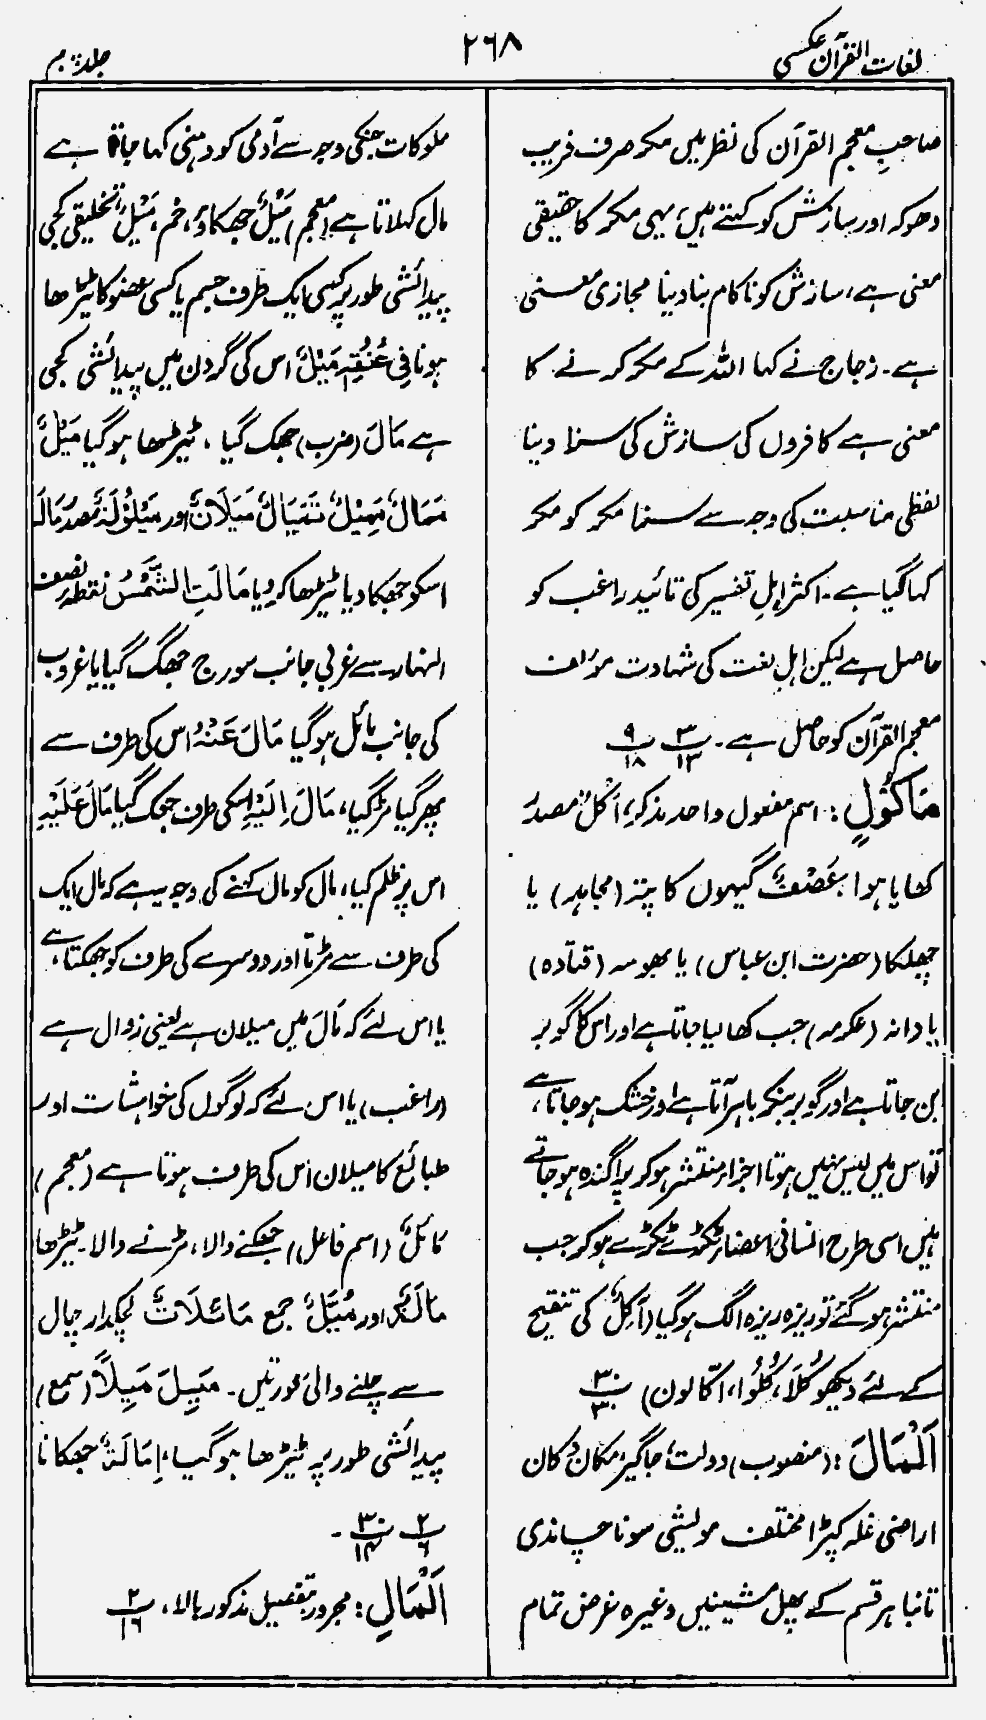 لغات القرآن عکسی
۲۶۸
جلد پنجم
صاحبِ معجم القرآن کی نظر میں مکر صرف فریب
دھوکہ اور سازش کو کہتے ہیں، یہی مکر کا حقیقی
معنی ہے، سازش کو ناکام بنا دینا مجازی معنی
ہے۔ زجاج نے کہا اللہ کے مکر کرنے کا
معنی ہے کافروں کی سازش کی سزا دینا
لفظی مناسبت کی وجہ سے سزاء مکر کو مکر
کہا گیا ہے۔ اکثر اہلِ تفسیر کی تائید راغب کو
حاصل ہے لیکن اہلِ لغت کی شہادت مؤلف
معجم القرآن کو حاصل ہے۔ پ ۳ / ۱۳ پ ۹ / ۱۸
مَاکُوْلٍ: اسم مفعول واحد مذکر، اَکْلٌ مصدر
کھایا ہوا عَصْفٌ گیہوں کا پتہ (مجاہد) یا
چھلکا (حضرت ابن عباس) یا بھوسہ (قتادہ)
یا دانہ (عکرمہ) جب کھا لیا جاتا ہے اور اس کا گوبر
بن جاتا ہے اور گوبر بنکر باہر آتا ہے اور خشک ہو جاتا ہے،
تو اس میں لیس نہیں ہوتا اجزاء منتشر ہو کر پراگندہ ہو جاتے
ہیں اسی طرح انسانی اعضاء ٹکڑے ٹکڑے ہو کر جب
منتشر ہو گئے تو ریزہ ریزہ الگ ہو گیا (اٰکِلٌ کی تنقیح
کے لئے دیکھو کُلَا، کُلُوْا، اکّالون) پ ۳۰ / ۳۰
اَلْمَالَ: (منصوب) دولت، جاگیر، مکان، دکان
اراضی غلہ کپڑا مختلف مویشی سونا چاندی
تانبا ہر قسم کے پھل مشینیں وغیرہ غرض تمام
ملوکات جنکی وجہ سے آدمی کو دھنی کہا جاتا ہے
مال کہلاتا ہے (معجم) مَیْلٌ جھکاؤ، خم، مَیَلٌ تخلیقی کجی
پیدائشی طور پر کسی ایک طرف جسم یا کسی عضو کا ٹیڑھا
ہونا فِی عُنُقِہٖ مَیَلٌ اس کی گردن میں پیدائشی کجی
ہے مَالَ (ضرب) جھک گیا، ٹیڑھا ہو گیا مَیْلٌ
مَمَالٌ مَمِیْلٌ تَمْیَالٌ مَیَلَانٌ اور مَیْلُوْلَۃٌ مصدر مَالَہٗ
اسکو جھکا دیا ٹیڑھا کر دیا مَالَتِ الشَّمْسُ نقطہ نصف
النہار سے غربی جانب سورج جھک گیا یا غروب
کی جانب مائل ہو گیا مَالَ عَنْہُ اس کی طرف سے
پھر گیا مڑ گیا، مَالَ اِلَیْہِ اسکی طرف جھک گیا مَالَ عَلَیْہِ
اس پر ظلم کیا، مال کو مال کہنے کی وجہ یہ ہے کہ مال ایک
کی طرف سے مڑتا اور دوسرے کی طرف کو جھکتا ہے،
یا اس لئے کہ مَال میں میلان ہے یعنی زوال ہے
(راغب) یا اس لئے کہ لوگوں کی خواہشات اور
طبائع کا میلان اس کی طرف ہوتا ہے (معجم)
مَائِلٌ (اسم فاعل) جھکنے والا، مڑنے والا۔ ٹیڑھا
مَالَۃٌ اور مُیَّلٌ جمع مَائِلَاتٌ لچکدار چال
سے چلنے والی عورتیں۔ مَیِلَ مَیَلًا (سمع)
پیدائشی طور پر ٹیڑھا ہو گیا، اِمَالَۃٌ جھکانا
پ ۲ / ۶ پ ۳۰ / ۱۴ ۔
اَلْمَالِ: مجرور بتفصیل مذکور بالا، پ ۲ / ۱۶